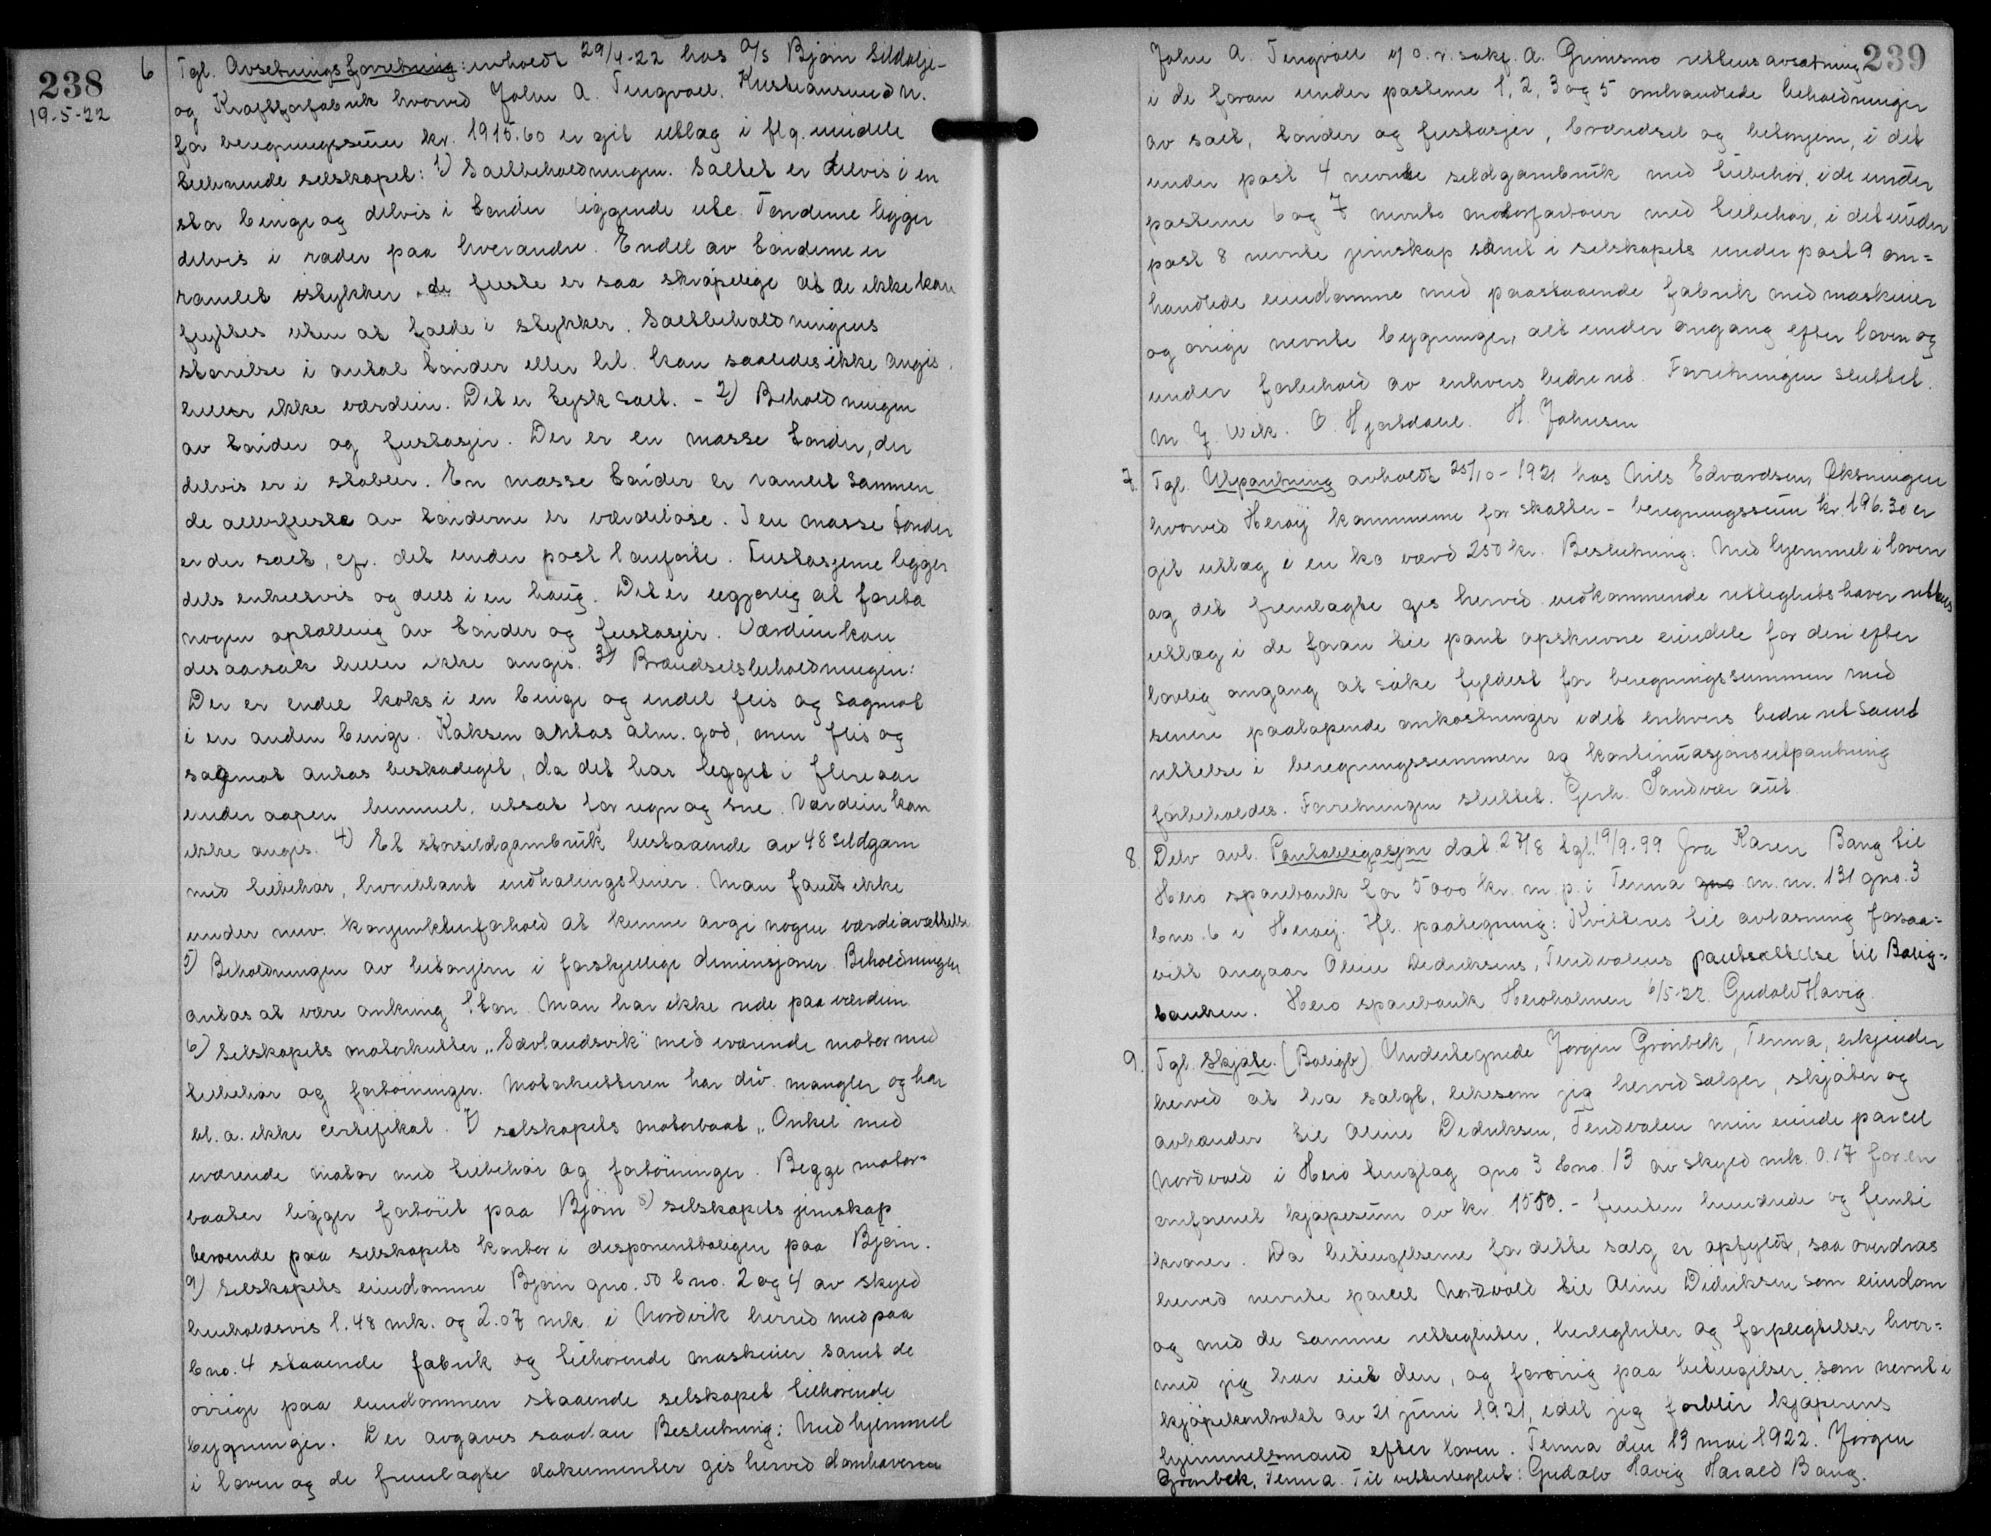 238
19-5-22
6 Tgl. Avsetningsforretning: avholdt 29/4-22 hos A/S Bjørn Sildolje-
og Kraftforfabrik hvorved John A. Tengvall. Kristiansund N.
for beregningssum kr. 1915.60 er git utlæg i flg. eiendele
tilhørende selskapet: 1) Saltbeholdningen. Saltet er delvis i en
stor binge og delvis i tønder liggende ute. Tønderne ligger
delvis i rader paa hverandre. Endel av tønderne er
ramlet istykker. de fleste er saa skrøpelige at de ikke kan
flyttes uten at falde i stykker. Saltbeholdningens
størrelse i antal tønder eller hl. kan saaledes ikke angis.
heller ikke værdien. Det er tysk salt. - 2) Beholdningen
av tønder og fustasjer. Der er en masse tønder, der
delvis er i stabler. En masse tønder er ramlet sammen
de allerfleste av tønderne er værdiløse. I en masse tønder
er der salt, cfr. det under post 1 anførte. Fustasjerne ligger
dels enkeltvis og dels i en haug. Det er ugjørlig at foreta
nogen optælling av tønder og fustasjer. Værdien kan
desaarsak heller ikke angis. 3) Brændselsbeholdningen:
Der er endel koks i en binge og endel flis og sagmot
i en anden binge. Koksen antas alm. god, men flis og
sagmot antas beskadiget, da det har ligget i flere aar
under aapen himmel, utsat for regn og sne. Værdien kan
ikke angis. 4) Et storsildgarnbruk bestaaende av 48 sildgarn
med tilbehør, hvoriblant indhalingsliner. Man fandt ikke
under nuv. konjunkturforhold at kunne avgi nogen værdiansættelse
5) Beholdningen av betonjern i forskjellige dimensjoner. Beholdningen
antas at være omkring 1 ton. Man har ikke rede paa værdien
6) Selskapets motorkutter "Sævlandsvik" med iværende motor med
tilbehør og fortøininger. Motorkutteren har div. mangler og har
bl. a. ikke certifikat. 7) selskapets motorbaat "Onkel" med
iværende motor med tilbehør og fortøininger. Begge motor-
baater ligger fortøiet paa Bjørn 8) selskapets jernskap
beroende paa selskapets kontor i disponentboligen paa Bjørn.
9) Selskapets eiendomme Bjørn gno. 50 bno. 2 og 4 av skyld
henholdsvis 1.48 mk. og 2.07 mk. i Nordvik herred med paa
bno. 4 staaende fabrik og tilhørende maskiner samt de
øvrige paa eiendommen staaende selskapet tilhørende
bygninger. Der avgaves saadan Beslutning: Med hjemmel
i loven og de fremlagte dokumenter gis herved domhaveren
239
John A. Tengvall v/ o. r. sakf. A. Grimsmo rettens avsætning
i de foran under posterne 1, 2, 3 og 5 omhandlede beholdninger
av salt, tønder og fustasjer, brændsel og betonjern, i det
under post 4 nevnte sildgarnbruk med tilbehør, i de under
posterne 6 og 7 nevnte motorfartøier med tilbehør, i det under
post 8 nevnte jernskap samt i selskapets under post 9 om-
handlede eiendomme med paastaaende fabrik med maskiner
og øvrige nevnte bygninger, alt under omgang efter loven og
under forbehold av enhvers bedre ret. Forretningen sluttet.
M Z. Wik. O. Hjortdahl. H. Johnsen
7. Tgl. Utpantning avholdt 25/10-1921 hos Nils Edvardsen, Øksningen
hvorved Herøy kommune for skatter - beregningssum kr. 196.30 er
git utlæg i en ko værd 250 kr. Beslutning: Med hjemmel i loven
og det fremlagte gis herved vedkommende rettighetshaver rettens
utlæg i de foran til pant opskrevne eiendele for deri efter
lovlig omgang at søke fyldest for beregningssummen med
senere paaløpende omkostninger idet enhvers bedre ret samt
rettelse i beregningssummen og kontinuasjonsutpantning
forbeholdes. Forretningen sluttet. Gerh. Sandvær aut
8. Delv avl. Pantobligasjon dat. 27/8 tgl. 19/9-99 fra Karen Bang til
Herø sparebank for 5000 kr. m. p. i Tenna gno m. nr. 131 gno. 3
bno. 6 i Herøy. Hf. paategning: Kvitteres til avløsning forsaa-
vidt angaar Oline Dedriksens, Tendvalens pantsættelse til Bolig-
banken. Herø sparebank Herøholmen 6/5-22. Gudolv Havig
9. Tgl. Skjøte. (Boligb.) Undertegnede Jørgen Grønbek, Tenna, erkjender
herved at ha solgt, likesom jeg herved sælger, skjøter og
avhænder til Oline Dedriksen, Tendvalen min eiende parcel
Nordvold i Herø tinglag gno 3 bno. 13 av skyld mk. 0.17 for en
omforenet kjøpesum av kr. 1550.- femten hundrede og femti
kroner. Da betingelserne for dette salg er opfyldt, saa overdras
herved nevnte parcel Nordvold til Oline Didriksen som eiendom
og med de samme rettigheter, herligheter og forpligtelser hvor-
med jeg har eiet den, og forøvrig paa betingelser som nevnt i
kjøpekontrakt av 21 juni 1921, idet jeg forblir kjøperens
hjemmelsmand efter loven. Tenna den 13 mai 1922. Jørgen
Grønbek, Tenna. Til vitterlighet: Gudolv Havig Harald Bang.